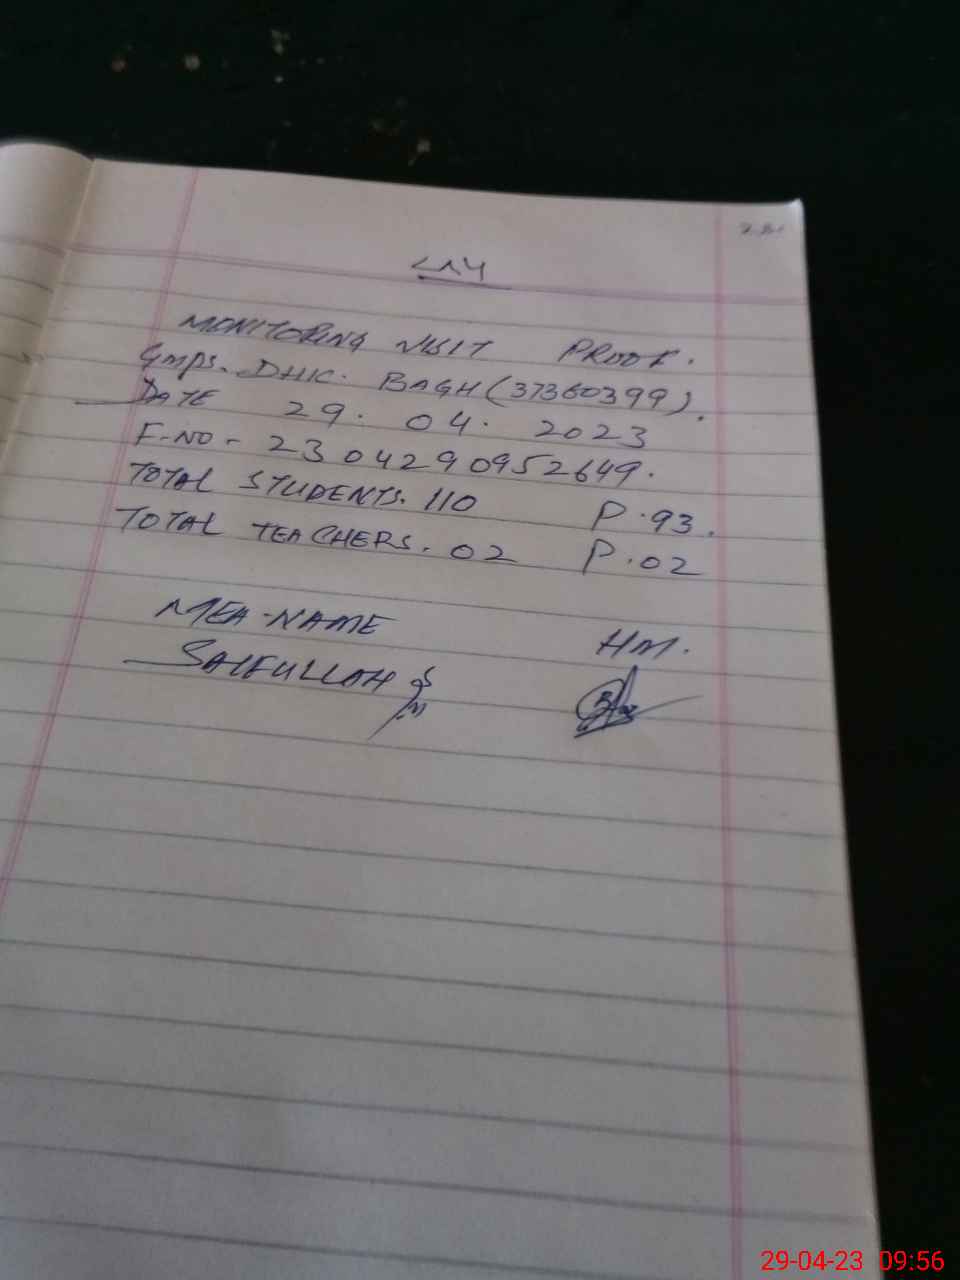 MONITORING VISIT PROOF.
GMPS. DHK. BAGH (37360399).
DATE 29. 04. 2023
F-NO - 2304290952649.
TOTAL STUDENTS. 110 P. 93.
TOTAL TEACHERS. 02 P. 02
MEA-NAME HM.
SAIFULLAH
29-04-23 09:56